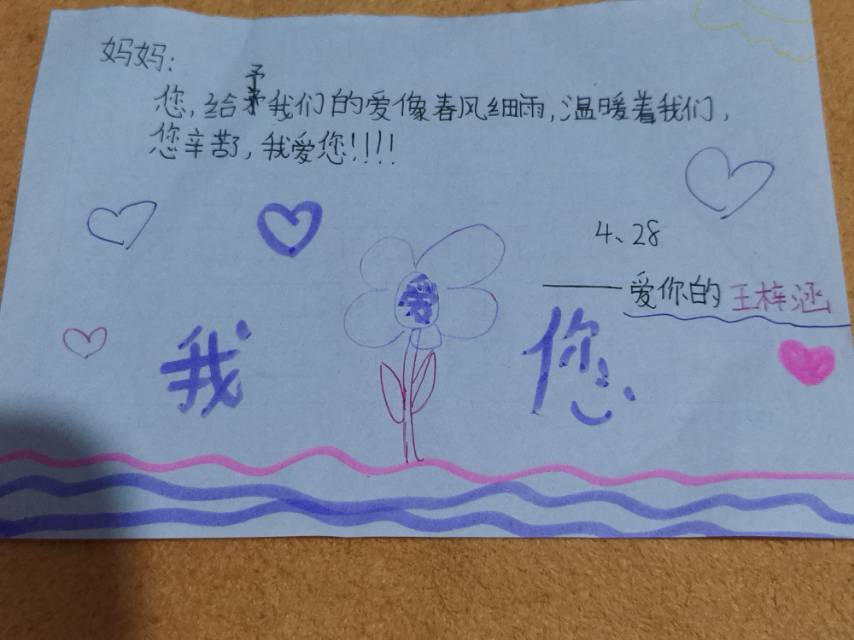 妈妈:
您,给予我们的爱像春风细雨,温暖着我们,
您辛苦,我爱您!!!!
4、28
——爱你的王梓涵
我爱您